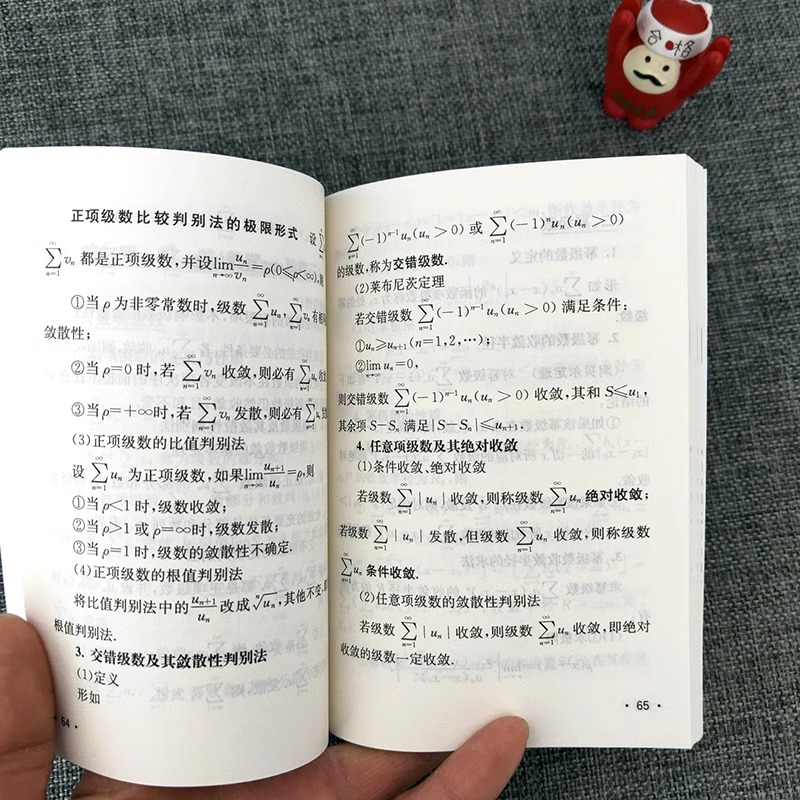 合格
正项级数比较判别法的极限形式 设
$\sum_{n=1}^{\infty} v_n$ 都是正项级数,并设$\lim_{n\to\infty}\frac{u_n}{v_n}=\rho(0\leqslant\rho<\infty)$,则
①当 ρ 为非零常数时,级数 $\sum_{n=1}^{\infty} u_n$, $\sum_{n=1}^{\infty} v_n$ 有
敛散性;
②当 ρ=0 时,若 $\sum_{n=1}^{\infty} v_n$ 收敛,则必有 $\sum_{n=1}^{\infty} u_n$
③当 ρ=+∞时,若 $\sum_{n=1}^{\infty} v_n$ 发散,则必有 $\sum_{n=1}^{\infty} u_n$
(3)正项级数的比值判别法
设 $\sum_{n=1}^{\infty} u_n$ 为正项级数,如果$\lim_{n\to\infty}\frac{u_{n+1}}{u_n}=\rho$,则
①当 ρ<1 时,级数收敛;
②当 ρ>1 或 ρ=∞时,级数发散;
③当 ρ=1 时,级数的敛散性不确定.
(4)正项级数的根值判别法
将比值判别法中的 $\frac{u_{n+1}}{u_n}$ 改成 $\sqrt[n]{u_n}$,其他不变,即
根值判别法.
3. 交错级数及其敛散性判别法
(1)定义
形如
· 64 ·
$\sum_{n=1}^{\infty}(-1)^{n-1}u_n(u_n>0)$ 或 $\sum_{n=1}^{\infty}(-1)^n u_n(u_n>0)$
的级数,称为交错级数.
(2)莱布尼茨定理
若交错级数 $\sum_{n=1}^{\infty}(-1)^{n-1}u_n(u_n>0)$ 满足条件:
①$u_n\geqslant u_{n+1}(n=1,2,\cdots)$;
②$\lim_{n\to\infty}u_n=0$,
则交错级数 $\sum_{n=1}^{\infty}(-1)^{n-1}u_n(u_n>0)$ 收敛,其和 $S\leqslant u_1$,
其余项 $S-S_n$ 满足$|S-S_n|\leqslant u_{n+1}$.
4. 任意项级数及其绝对收敛
(1)条件收敛、绝对收敛
若级数 $\sum_{n=1}^{\infty}|u_n|$ 收敛,则称级数 $\sum_{n=1}^{\infty}u_n$ 绝对收敛;
若级数 $\sum_{n=1}^{\infty}|u_n|$ 发散,但级数 $\sum_{n=1}^{\infty}u_n$ 收敛,则称级数
$\sum_{n=1}^{\infty}u_n$ 条件收敛.
(2)任意项级数的敛散性判别法
若级数 $\sum_{n=1}^{\infty}|u_n|$ 收敛,则级数 $\sum_{n=1}^{\infty}u_n$ 收敛,即绝对
收敛的级数一定收敛.
· 65 ·